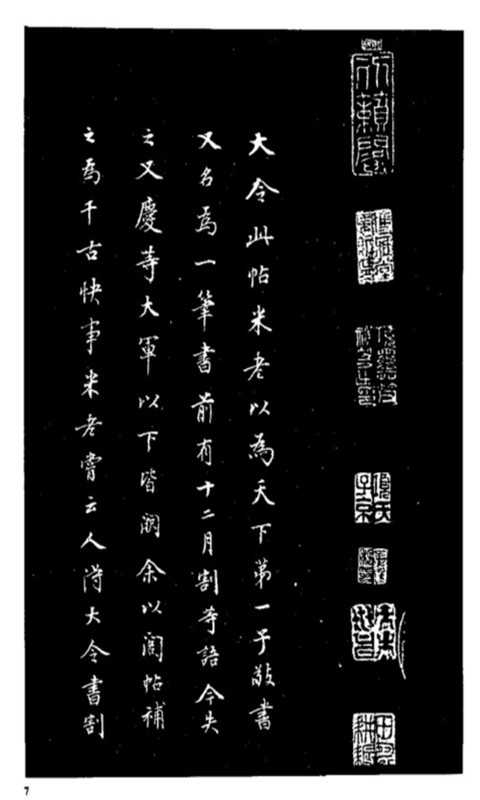 大令此帖米老以為天下第一子敬書
又名為一筆書前有十二月割等語今失
之又慶等大軍以下皆闕余以閣帖補
之為千古快事米老嘗云人得大令書割
7